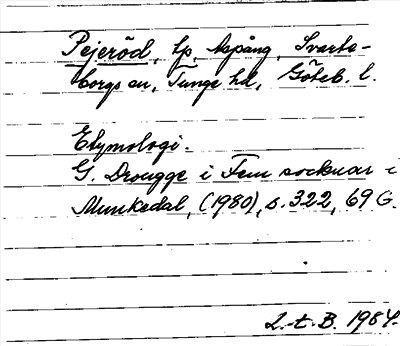 Pejeröd, lp, Aspång, Svarte-
borgs sn, Tunge hd, Göteb. l.
Etymologi.
G. Drougge i Fem socknar i
Munkedal, (1980), s. 322, 69 G.
L.-t. B. 1984.